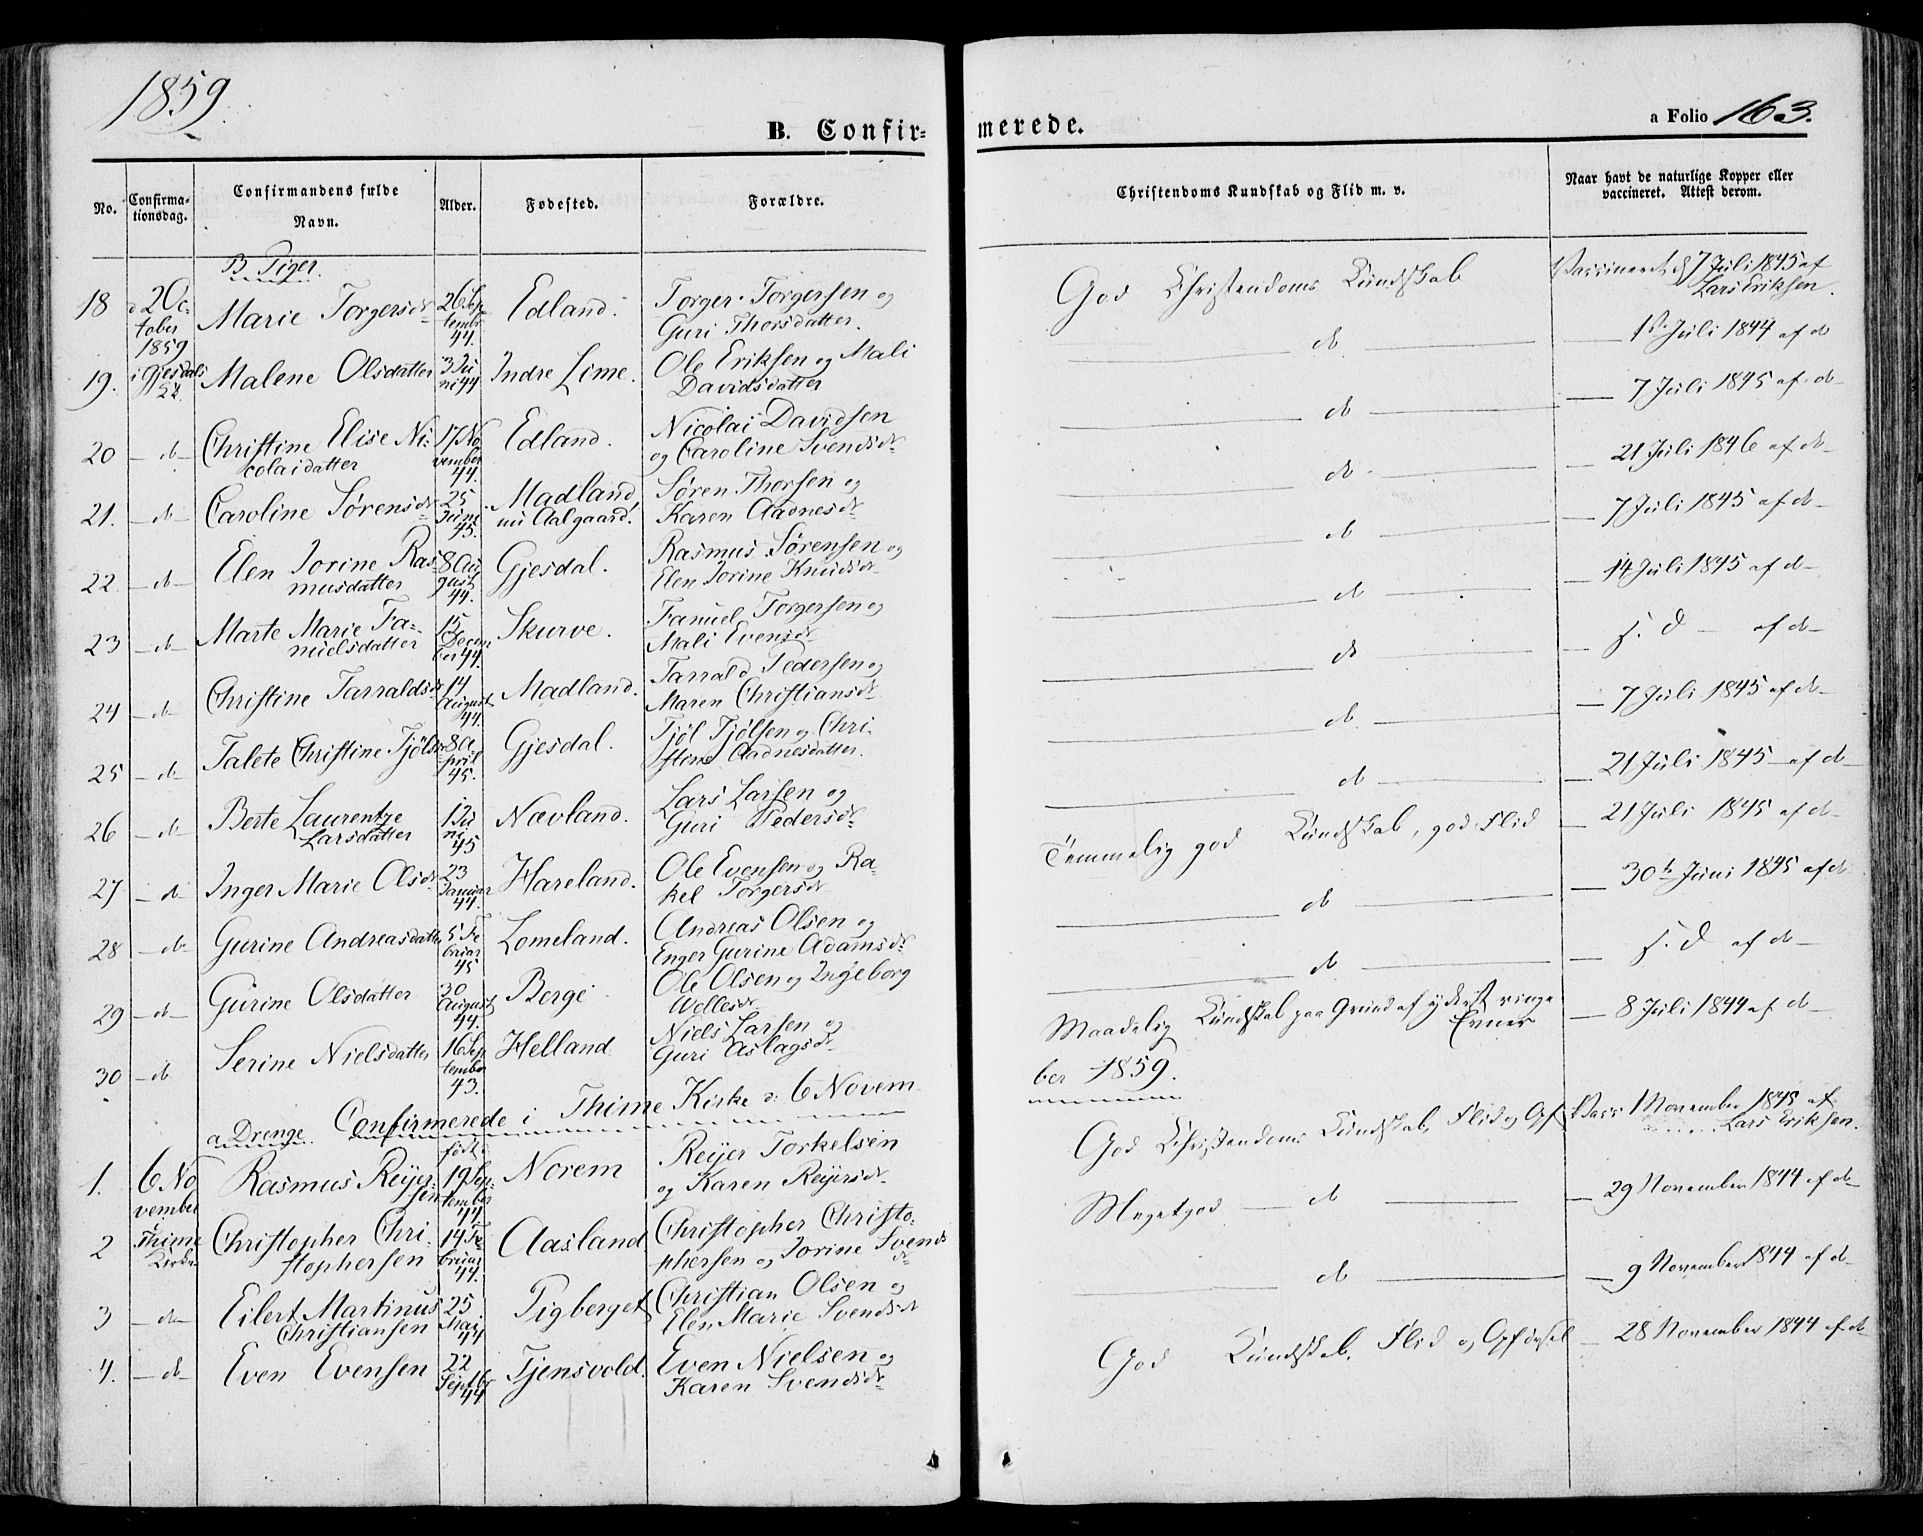 1859.
B. Confir= merede.
a Folio 163.
No.
Confirma-
tionsdag.
Confirmandens fulde
Navn.
Alder.
Fødested.
Forældre.
Christendoms Kundskab og Flid m. v.
Naar havt de naturlige Kopper eller
vaccineret. Attest derom.
B. Piger.
18 d 2 Oc-
tober
1859
i Gjesdals
Marie Torgersdtr
26 Sep
tembr
44.
Edland.
Torger Torgersen og
Guri Thorsdatter.
God Christendoms Kundskab
Vaccineret d 7 Juli 1845 af
Lars Eriksen.
19. Malene Olsdatter
3 Ju
ni 44
Indre Lime.
Ole Eriksen og Mali
Davidsdatter
do
Juli 1844 af do
20 - do - Christine Elise Ni-
colaidatter
17 No
vember
44.
Edland.
Nicolai Davidsen
og Caroline Svendsdtr
do
7 Juli 1845 af do
21. - do - Caroline Sørensdtr
25
Juni
45.
Madland
nu Aalgaard.
Søren Thorsen og
Karen Aadnesdtr
do
21 Juli 1846 af do
22 - do - Elen Jorine Ras-
musdatter
8 Au
gust
44.
Gjesdal.
Rasmus Sørensen og
Elen Jorine Knudsdtr
do
7 Juli 1845 af do
23 - do - Marte Marie Fa-
nuelsdatter
15
Decem
ber 44.
Skurve.
Fanuel Torgersen og
Mali Evensdtr
do
14 Juli 1845 af do
24 - do - Christine Tarraldsdtr
14
August
44.
Madland.
Tarrald Pedersen og
Maren Christiansdtr
do
s. d - af do
25 - do - Talete Christine Tjølsdtr
8 A
pril
45.
Gjesdal.
Tjøl Tjølsen og Chri-
stine Aadnesdatter.
do
7 Juli 1845 af do
26 - do - Berte Laurentze
Larsdatter
1 Ju
ni
45
Nævland.
Lars Larsen og
Guri Pedersdtr
do
21 Juli 1845 af do
27 - do - Inger Marie Olsdtr
23
Januar
44.
Hareland.
Ole Evensen og Ra-
kel Torgersdtr
Temmelig god Kundskab, god Flid
21 Juli 1845 af do
28 - do - Gurine Andreasdatter
5 Fe
bruar
45
Lomeland.
Andreas Olsen og
Enger Gurine Adamsdtr
do
30te Juni 1845 af do
29 - do - Gurine Olsdatter
30
August
44.
Berge
Ole Olsen og Ingeborg
Wellesdtr
do
s. d af do
30 - do Serine Nielsdatter
16 Sep
tember
43.
Helland
Niels Larsen og
Guri Aslagsdtr
Maadelig Kundskab paa Grund af yderst ringe
Evner
8 Juli 1844 af do
Confirmerede i Thime Kirke d: 6 Novem
ber 1859.
a Drenge.
1. 6 No
vember
Thime
Kirke
Rasmus Reijer-
sen
født
19 Sep
tember
44
Norem
Reijer Torkelsen
og Karen Reijersdtr
God Christendoms Kundskab, Flid og Opf.
Vacc 1 November 1845 af
Lars Eriksen.
2 Christopher Chri-
stophersen
14 Fe-
bruar
44.
Aasland
Christopher Christo-
phersen og Jorine Svends
dtr
Megetgod do
29 November 1844 af do
3 - do - Eilert Martinus
Christiansen
25
Mai
44
Pigberget
Christian Olsen og
Elen Marie Svendsdtr
do
9 November 1844 af do
4. - do - Even Evensen
22
Septbr
44
Tjensvold.
Even Nielsen og
Karen Svendsdtr
God Kundskab, Flid og Opførsel
28 November 1844 af do